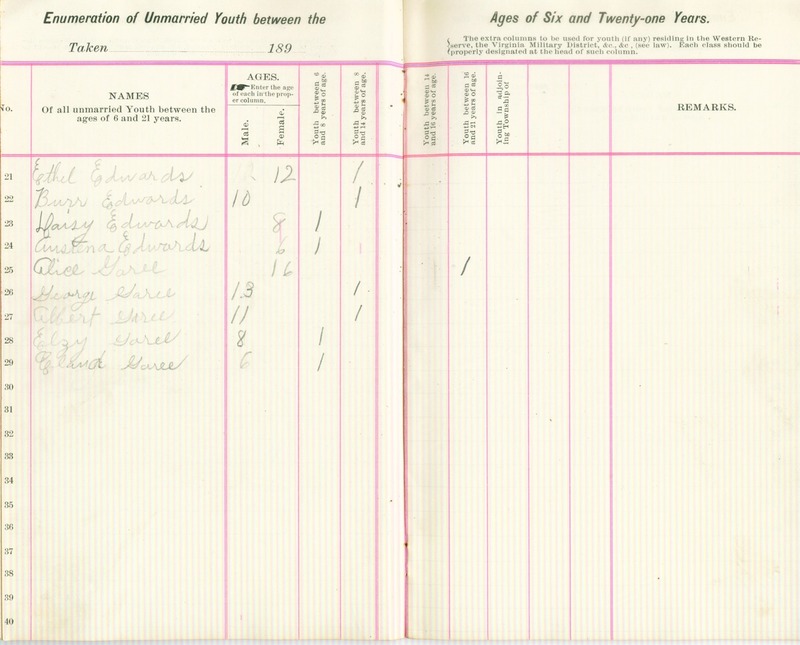 Enumeration of Unmarried Youth between the Ages of Six and Twenty-one Years.
Taken 189
The extra columns to be used for youth (if any) residing in the Western Re-
serve, the Virginia Military District, &c., &c., (see law). Each class should be
properly designated at the head of such column.
No.
NAMES
Of all unmarried Youth between the
ages of 6 and 21 years.
AGES.
Enter the age
of each in the prop-
er column.
Male.
Female.
Youth between 6
and 8 years of age.
Youth between 8
and 14 years of age.
Youth between 14
and 16 years of age.
Youth between 16
and 21 years of age.
Youth in adjoin-
ing Township of
REMARKS.
21 Ethel Edwards 12 1
22 Burr Edwards 10 1
23 Daisy Edwards 8 1
24 Edwards 6 1
25 Alice Garee 16 1
26 George Garee 13 1
27 Albert Garee 11 1
28 Elzy Garee 8 1
29 Garee 6 1
30
31
32
33
34
35
36
37
38
39
40